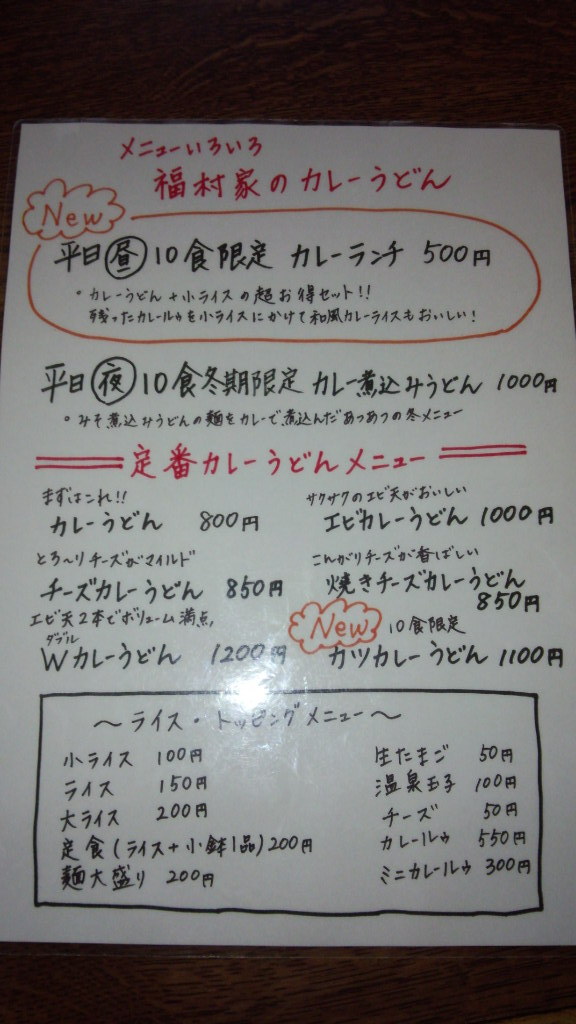 メニューいろいろ
福村家のカレーうどん
New
平日昼10食限定 カレーランチ 500円
・カレーうどん+小ライスの超お得セット!!
残ったカレールゥを小ライスにかけて和風カレーライスもおいしい!
平日夜10食冬期限定 カレー煮込みうどん 1000円
・みそ煮込みうどんの麺をカレーで煮込んだあつあつの冬メニュー
定番カレーうどんメニュー
まずはこれ!!
カレーうどん 800円
サクサクのエビ天がおいしい
エビカレーうどん 1000円
とろ〜りチーズがマイルド
チーズカレーうどん 850円
こんがりチーズが香ばしい
焼きチーズカレーうどん
850円
エビ天2本でボリューム満点,
ダブル
Wカレーうどん 1200円
New 10食限定
カツカレーうどん 1100円
〜ライス・トッピングメニュー〜
小ライス 100円
ライス 150円
大ライス 200円
定食(ライス+小鉢1品)200円
麺大盛り 200円
生たまご 50円
温泉玉子 100円
チーズ 50円
カレールゥ 550円
ミニカレールゥ 300円